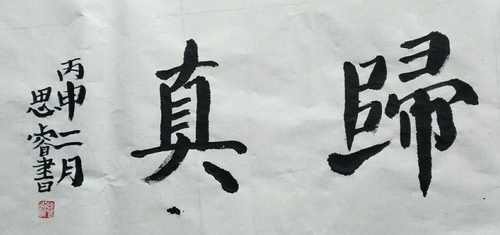 歸真
丙申二月
思睿書